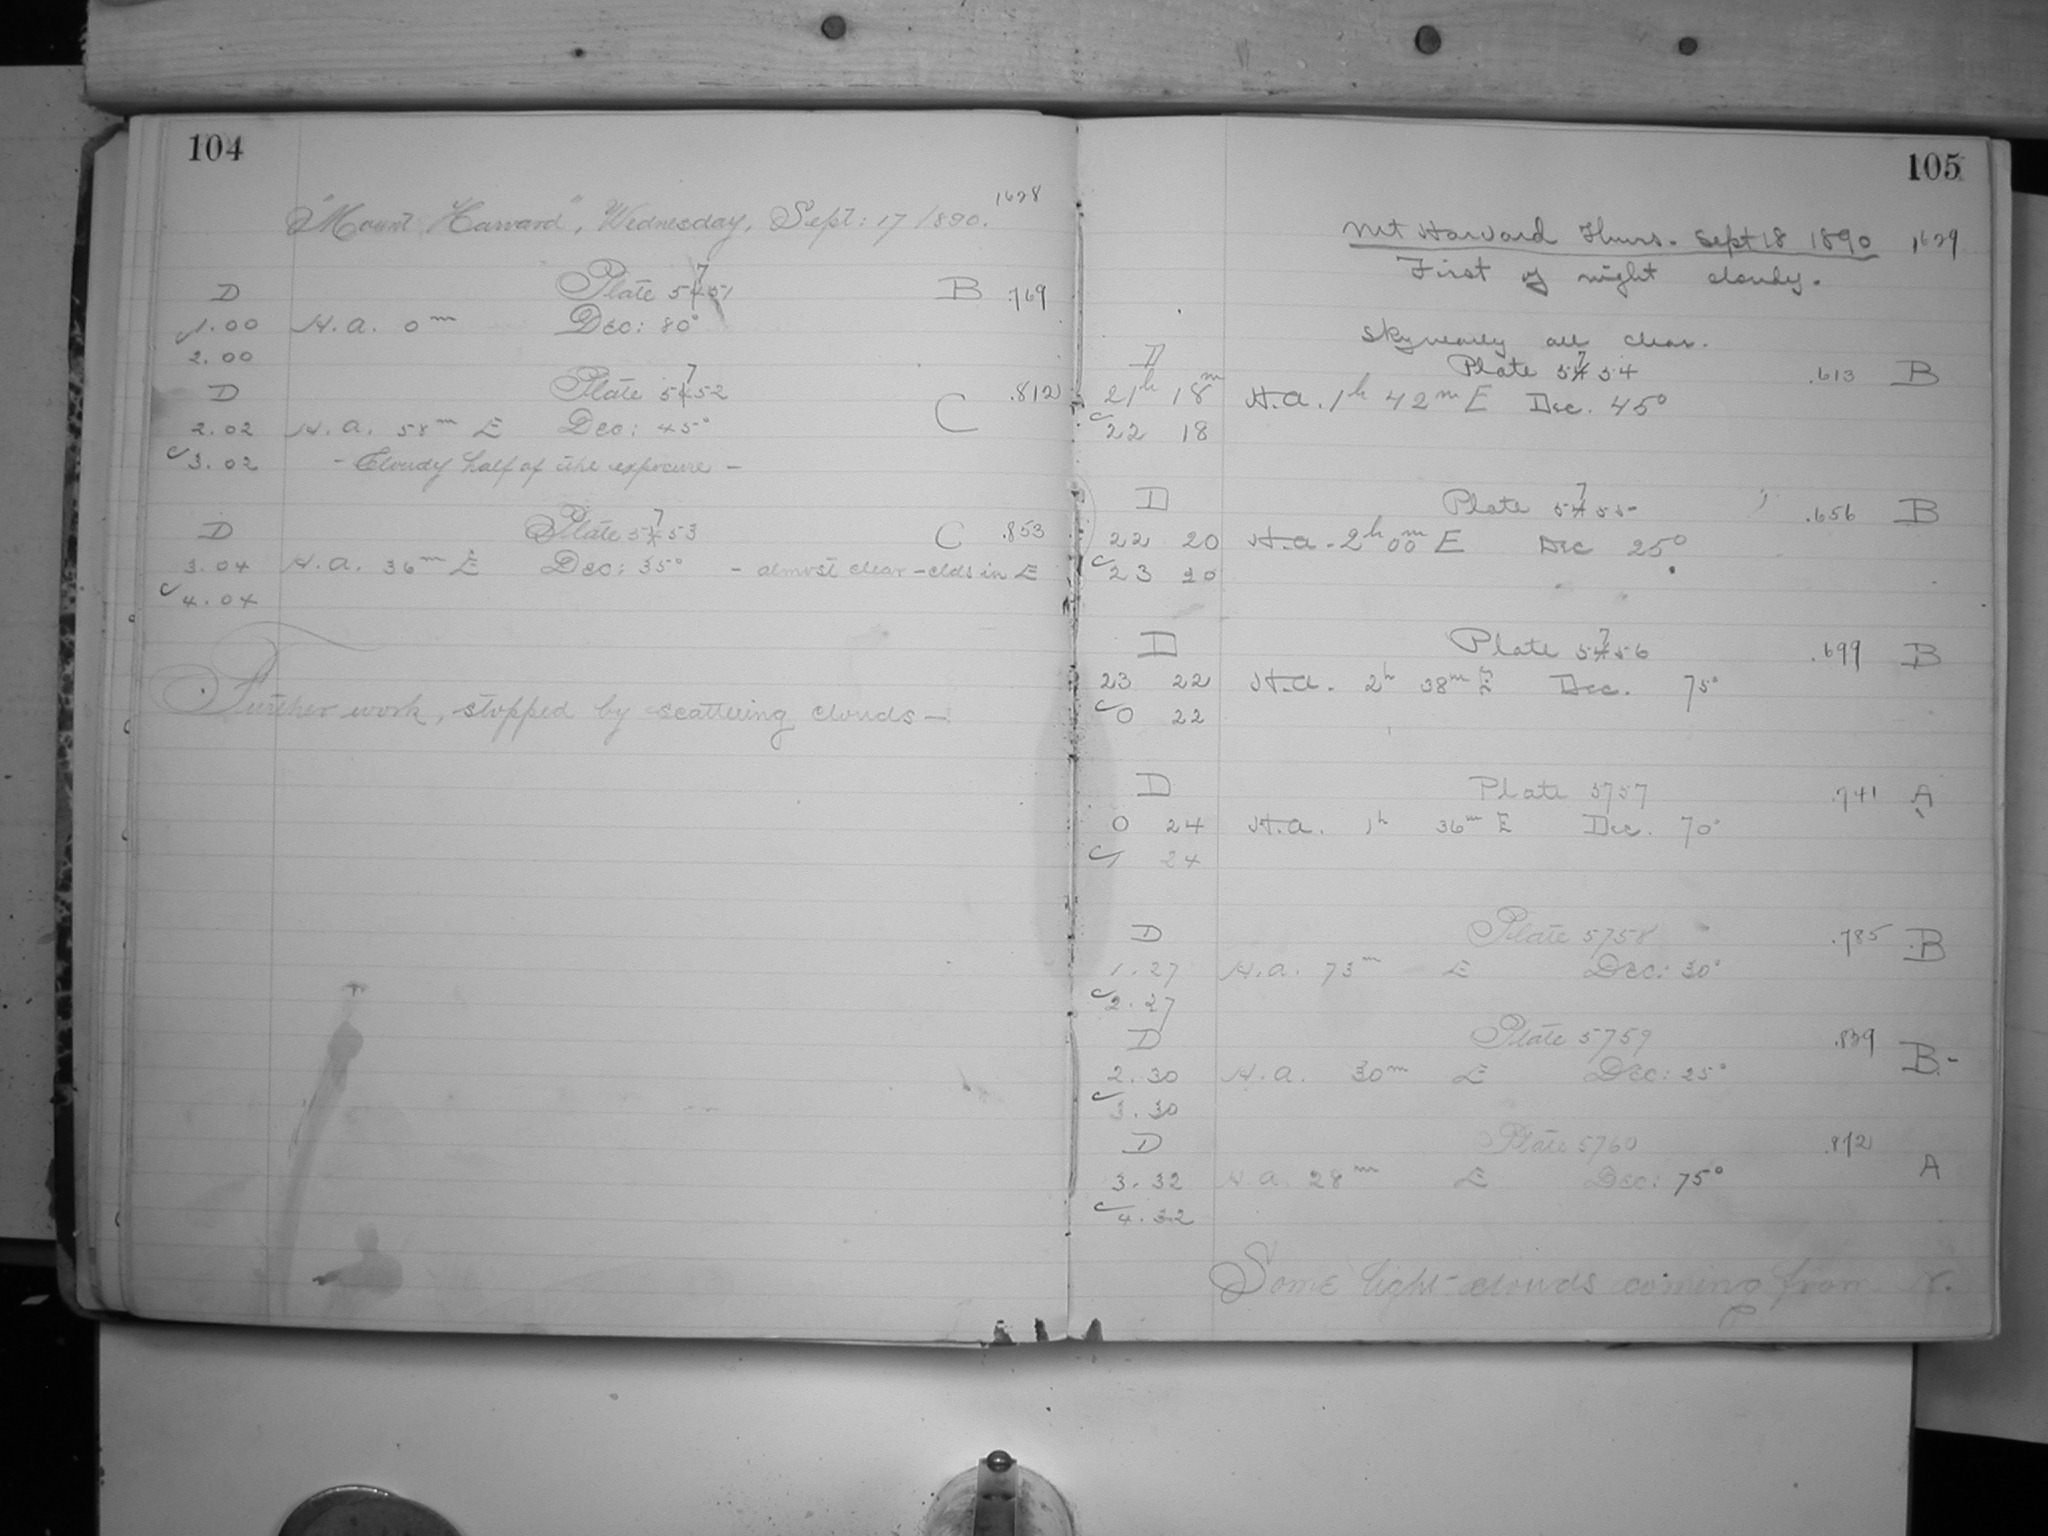 104
"Mount Harvard", Wednesday, Sept: 17 1890. 1628
D Plate 5751 B .769
1.00 H.a. 0m Dec: 80°
2.00
D Plate 5752 C .812
2.02 H.a. 58m E Dec: 45°
3.02 - Cloudy half of the exposure -
D Plate 5753 C .853
3.04 H.a. 36m E Dec: 35° - almost clear - clds in E
4.04
Further work, stopped by scattering clouds -
105
Mt Harvard Thurs. Sept 18 1890 1629
First of night cloudy.
Sky nearly all clear.
D Plate 5754 .613 B
21h 18m H.a. 1h 42m E Dec. 45°
22 18
D Plate 5755 .656 B
22 20 H.a. 2h 00m E Dec 25°
23 20
D Plate 5756 .699 B
23 22 H.a. 2h 38m E Dec. 75°
0 22
D Plate 5757 .741 A
0 24 H.a. 1h 36m E Dec. 70°
1 24
D Plate 5758 .785 B
1.27 H.a. 73m E Dec: 30°
2.27
D Plate 5759 B-
2.30 H.a. 30m E Dec: 25°
3.30
D Plate 5760 .872 A
3.32 H.a. 28m E Dec: 75°
4.32
Some light clouds coming from